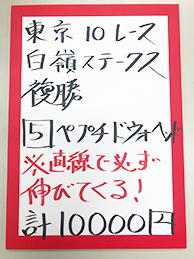 東京10レース
白嶺ステークス
複勝
5 ペプチドウォヘッド
※直線で必ず
伸びてくる!
計10000円